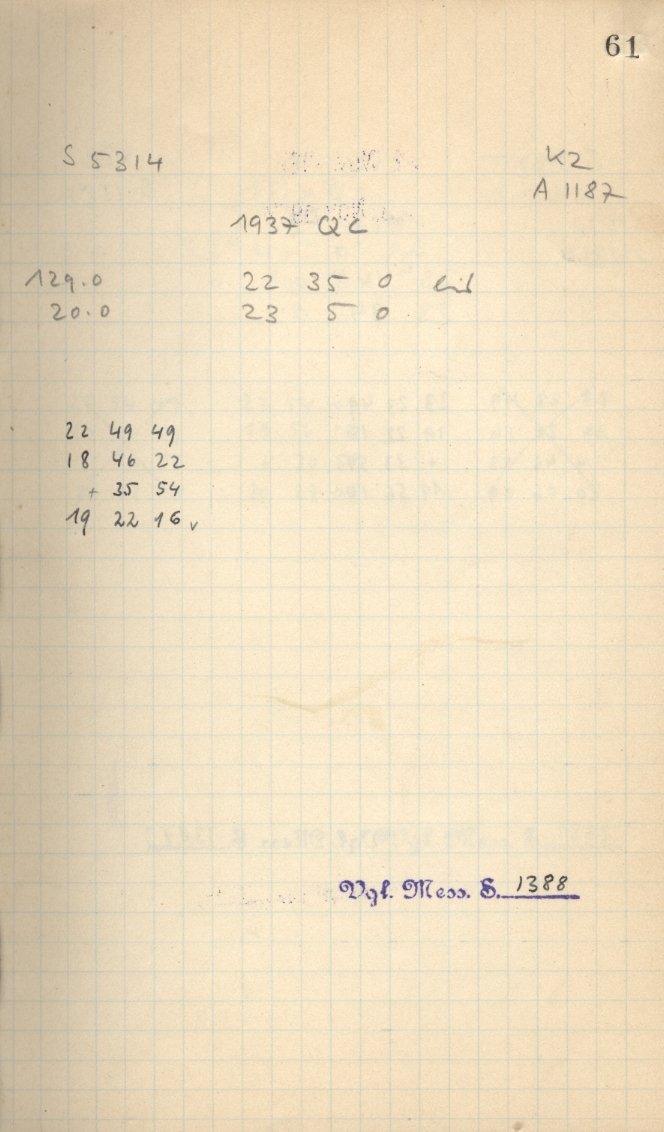 61
S 5314 K2
A 1187
1937 QC
129.0 22 35 0
20.0 23 5 0
22 49 49
18 46 22
+ 35 54
19 22 16 v
Vgl. Mess. S. 1388